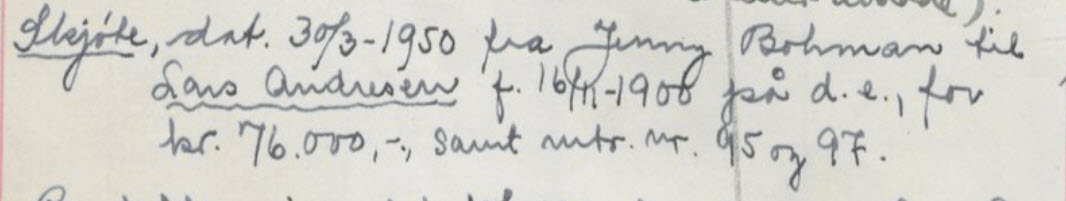 Skjöte, dat. 30/3-1950 fra Jenny Bohman til
Lars Andresen f. 16/11-1900 på d.e., for
kr. 76.000,-, samt mtr. nr. 95 og 97.